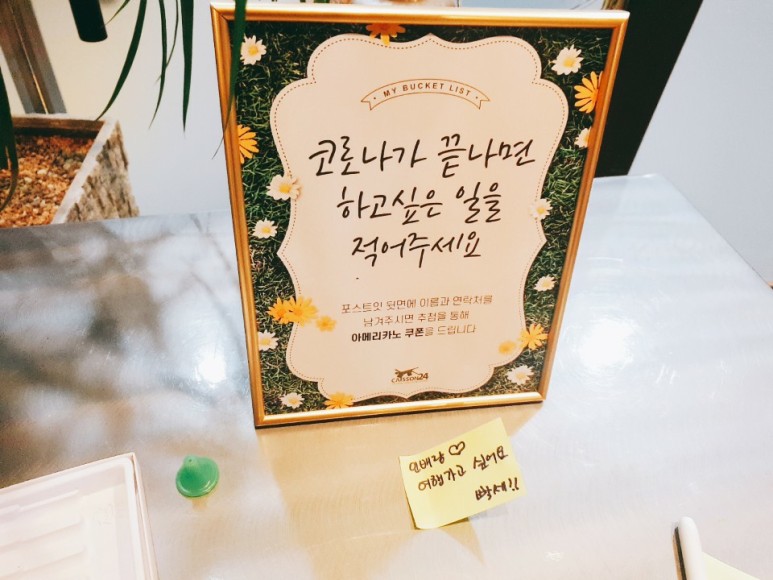 MY BUCKET LIST
코로나가 끝나면
하고싶은 일을
적어주세요
포스트잇 뒷면에 이름과 연락처를
남겨주시면 추첨을 통해
아메리카노 쿠폰을 드립니다
CAISSON24
오빠랑 ♡
여행가고 싶어요
빡세!!